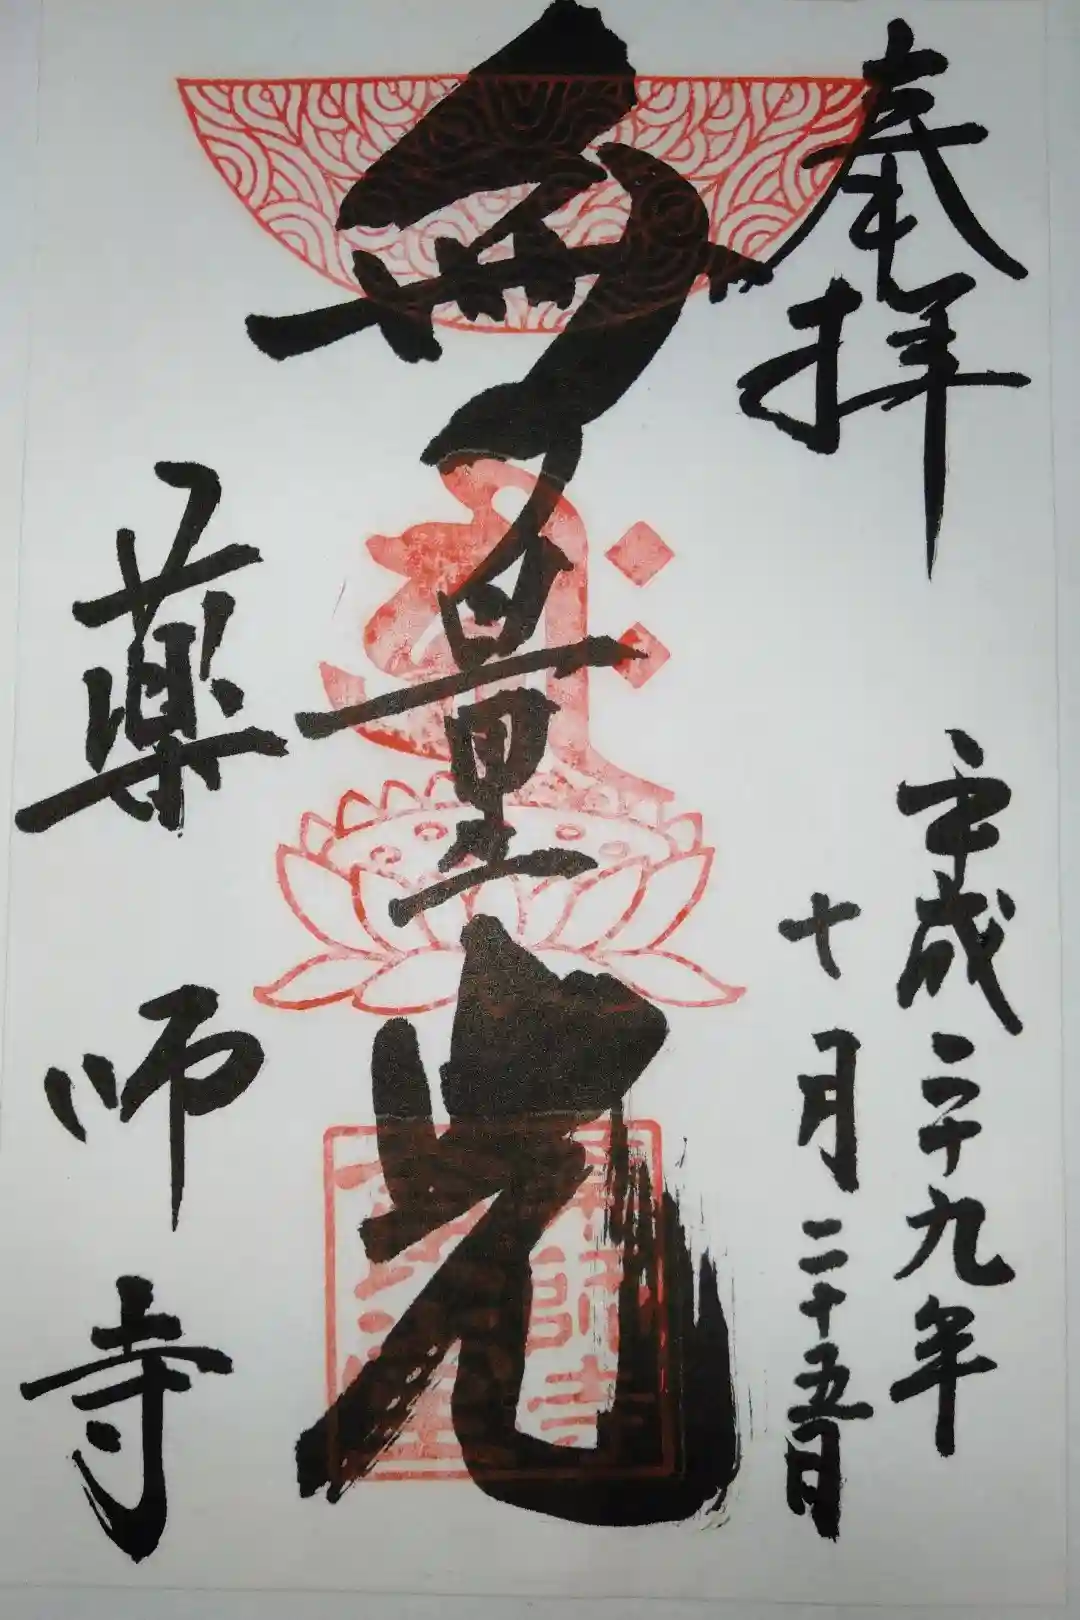 奉拝
平成二十九年
十月二十五日
無量光
薬師寺